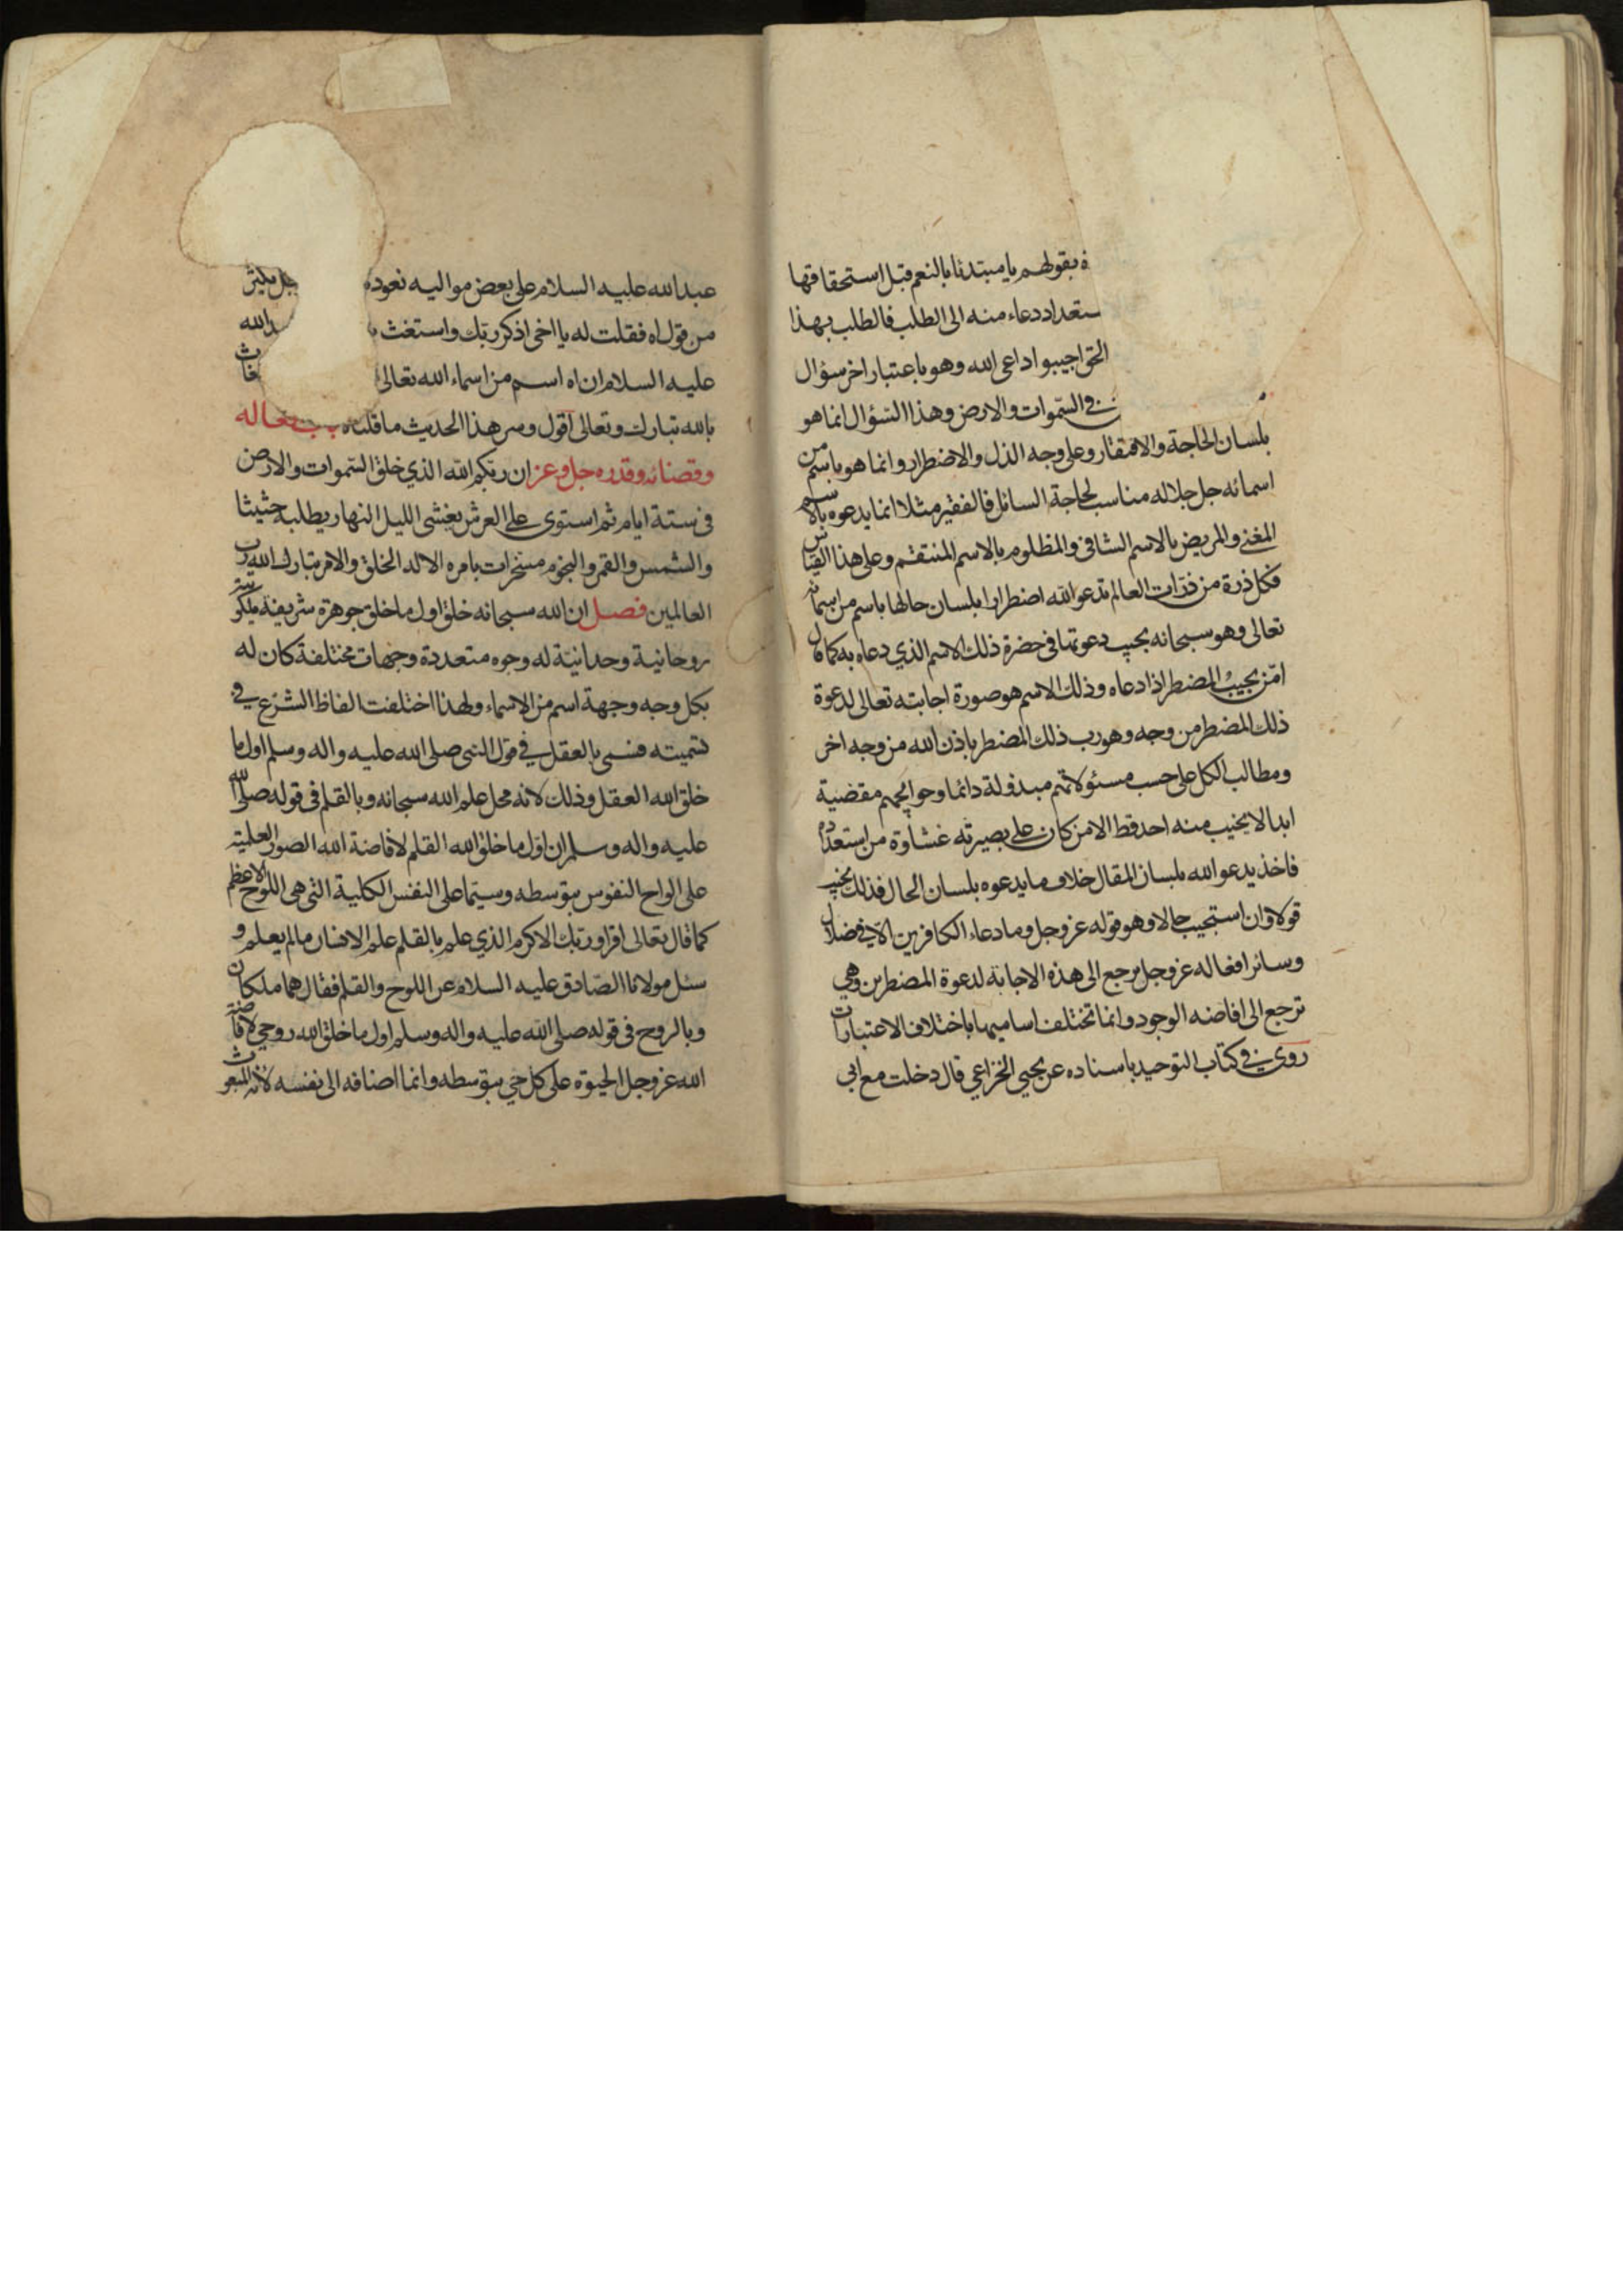 بقولهم يا مبتدئا بالنعم قبل استحقاقها
ستعداد دعاء منه الى الطلب فالطلب بهذا
الحق اجيبوا داعى الله وهو باعتبار اخر سؤال
فى السموات والارض وهذا السؤال انما هو
بلسان الحاجة والافتقار وعلى وجه الذل والاضطرار وانما هو باسم من
اسمائه جل جلاله مناسب لحاجة السائل فالفقير مثلا انما يدعوه بالاسم
المغنى والمريض بالاسم الشافى والمظلوم بالاسم المنتقم وعلى هذا القياس
فكل ذرة من ذرات العالم تدعو الله اضطرارا بلسان حالها باسم من اسمائه
تعالى وهو سبحانه يجيب دعوتها فى حضرة ذلك الاسم الذي دعاه به كما قال
امّن يجيب المضطر اذا دعاه وذلك الاسم هو صورة اجابته تعالى لدعوة
ذلك المضطر من وجه وهو رب ذلك المضطر باذن الله من وجه اخر
ومطالب الكل على حسب مسئولاتهم مبذولة دائما وحوايجهم مقضية
ابدا لا يخيب منه احد قط الا من كان على بصيرته غشاوة من استعداده
فاخذ يدعو الله بلسان المقال خلاف ما يدعوه بلسان الحال فذلك يخيب
قولا وان استجيب حالا وهو قوله عز وجل وما دعاء الكافرين الا فى ضلال
وسائر افعاله عز وجل يرجع الى هذه الاجابة لدعوة المضطرين وهي
ترجع الى افاضه الوجود وانما تختلف اساميها باختلاف الاعتبارات
روى فى كتاب التوحيد باسناده عن يحيى الخزاعي قال دخلت مع ابى
عبد الله عليه السلام على بعض مواليه نعوده جل يكثر
من قول اه فقلت له يا اخى اذكر ربك واستغث الله
عليه السلام ان اه اسم من اسماء الله تعالى غاث
بالله تبارك وتعالى اقول وسر هذا الحديث ما قلناه
وقضائه وقدره جل وعز ان ربكم الله الذي خلق السموات والارض
فى ستة ايام ثم استوى على العرش يغشى الليل النهار يطلبه حثيثا
والشمس والقمر والنجوم مسخرات بامره الا له الخلق والامر تبارك الله رب
العالمين فصل ان الله سبحانه خلق اول ما خلق جوهرة شريفة ملكوتية
روحانية وحدانيّة له وجوه متعددة وجهات مختلفة كان له
بكل وجه وجهة اسم من الاسماء ولهذا اختلفت الفاظ الشرع فى
تسميته فسمى بالعقل فى قول النبى صلى الله عليه واله وسلم اول ما
خلق الله العقل وذلك لانه محل علم الله سبحانه وبالقلم فى قوله صلى الله
عليه واله وسلم ان اوّل ما خلق الله القلم لافاضة الله الصور العلمية
على الواح النفوس بتوسطه وسيّما على النفس الكلية التى هى اللوح الاعظم
كما قال تعالى اقرا وربك الاكرم الذي علم بالقلم علم الانسان ما لم يعلم و
سئل مولانا الصّادق عليه السلام عن اللوح والقلم فقال هما ملكان
وبالروح فى قوله صلى الله عليه واله وسلم اول ما خلق الله روحي لافاضة
الله عز وجل الحيوة على كل حي بتوسطه وانما اضافه الى نفسه لانه المبعوث